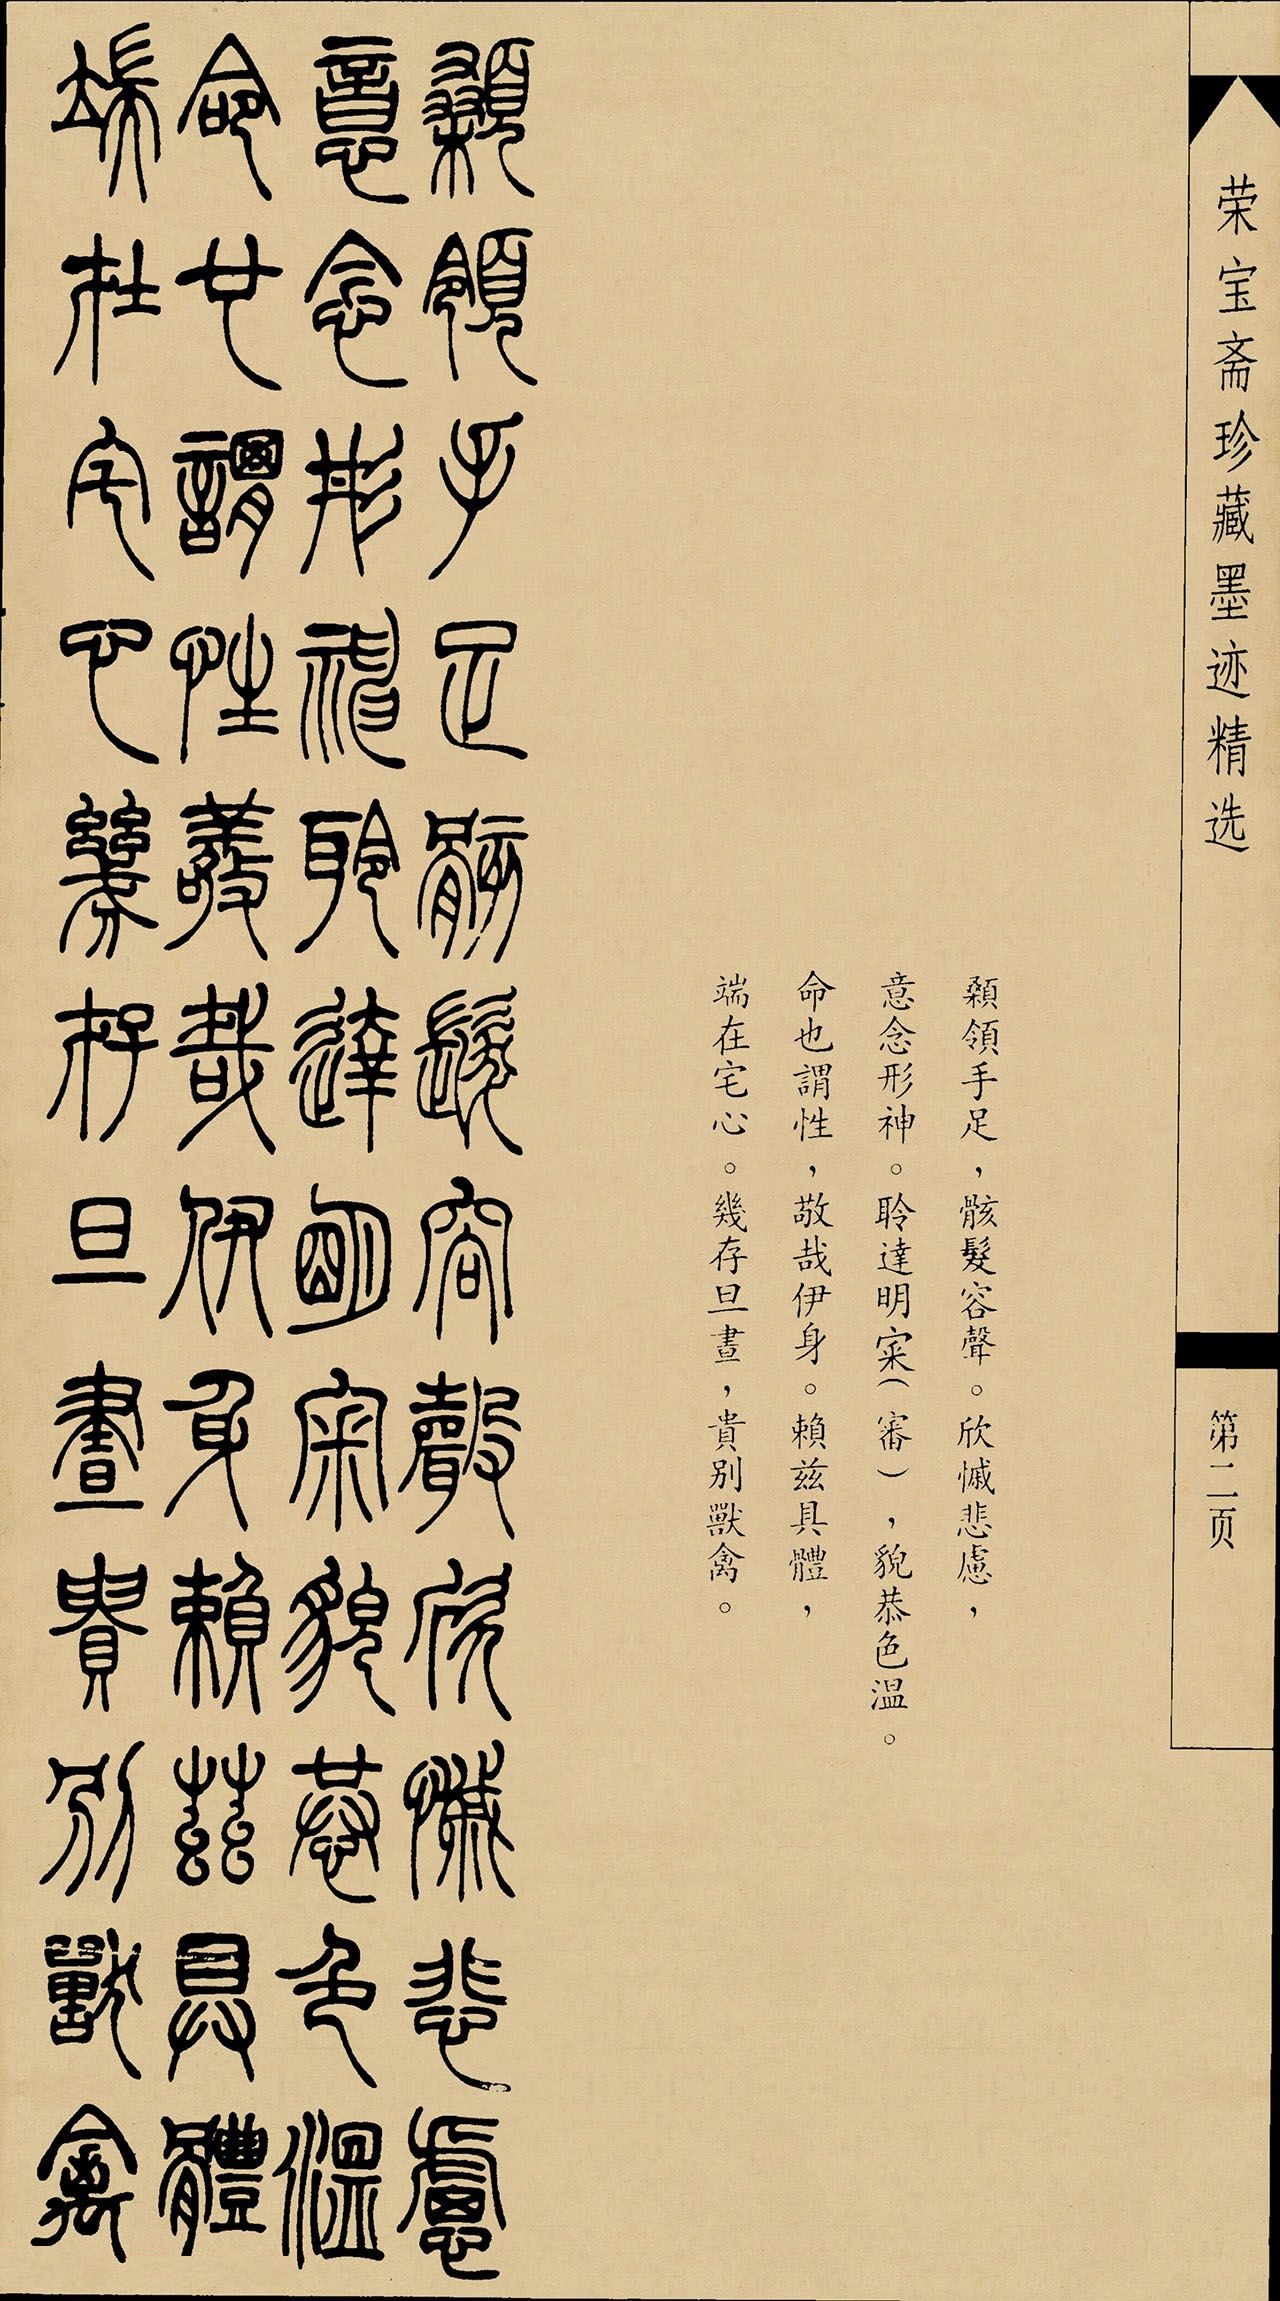 荣宝斋珍藏墨迹精选
第二页
顙領手足，骸髮容聲。欣慽悲慮，
意念形神。聆達明寀（審），貌恭色溫。
命也謂性，敬哉伊身。賴兹具體，
端在宅心。幾存旦晝，貴别獸禽。
顙領手足骸髮容聲欣慽悲慮
意念形神聆達明寀貌恭色溫
命也謂性敬哉伊身賴兹具體
端在宅心幾存旦晝貴别獸禽